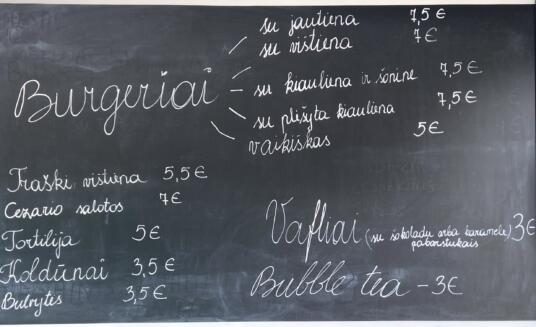 Burgeriai
su jautiena 7,5€
su vištiena 7€
su kiauliena ir šonine 7,5€
su plėšyta kiauliena 7,5€
vaikiškas 5€
Traški vištiena 5,5€
Cezario salotos 7€
Tortilija 5€
Koldūnai 3,5€
Bulvytės 3,5€
Vafliai (su šokoladu arba karamele) 3€
pabarstukais
Bubble tea - 3€